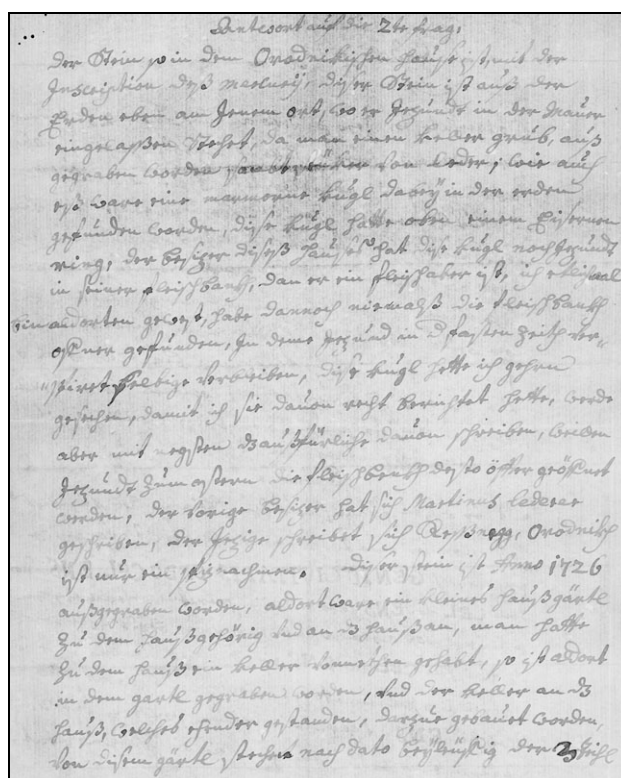 Antwort auf die 2te frag:
der Stein so in dem Orodnikischen hause ist mit der
Inscription deß Maelneÿ, diser Stein ist auß der
Erden eben am Jenem ort, wo er Jezundt in der Mauer
eingelaßen Stehet, da man einen Keller grub, auß
gegraben worden von Leder, wie auch
eß ware eine marmorne Kugl dabeÿ in der erden
gefunden worden, dise Kugl hatte oben einem Eisernen
ring, der besizer diseß Hauses hat dise Kugl noch Jezundt
in seiner fleischbankh, dan er ein fleischaker ist, ich etlichmal
bin aldorten gewest, habe dannoch niemalß die fleischbankh
offner gefunden, In deme Jezund in d fasten zeith ver-
selbige verbleiben, dise Kugl hette ich gehrn
gesechen, damit ich sie davon recht berichtet hette, werde
aber mit negsten dz außfürliche davon schreiben, weillen
Jezundt zum ostern die fleischbenkh desto öffter geöffnet
werden, der vorige besizer hat sich Martinus Lederer
geschriben, der Jezige schreibet sich Orodnikh
ist nur ein spiznachmen. Diser stein ist Anno 1726
außgegraben worden, aldort ware ein Kleines haußgärtl
zu dem hauß gehörig und an dz hauß an, man hatte
zu dem hauß ein Keller vonnethen gehabt, so ist aldort
in dem gärtl gegraben worden, und der Keller an dz
hauß, welches ehender gestanden, darzue gebauet worden,
von disem gärtl stehen nach dato beÿleüffig der 3 theihl